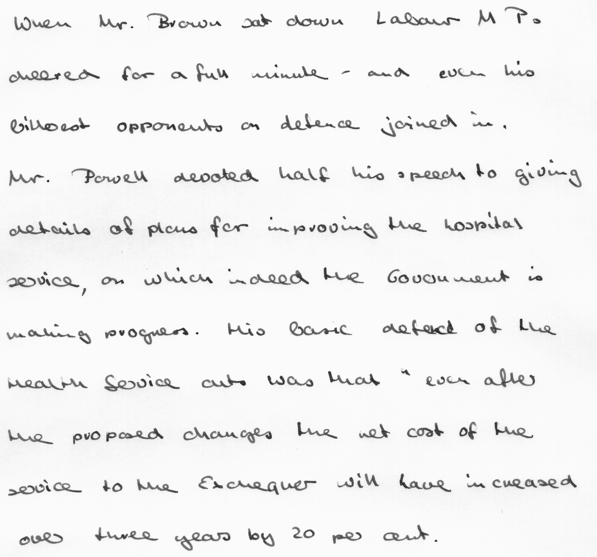 When Mr. Brown sat down Labour M P.
cheered for a full minute - and even his
bitterest opponents on defence joined in.
Mr. Powell devoted half his speech to giving
details of plans for improving the hospital
service, on which indeed the Government is
making progress. His basic defect of the
Health Service cuts was that " even after
the proposed changes the net cost of the
service to the Exchequer will have increased
over three years by 20 per cent.